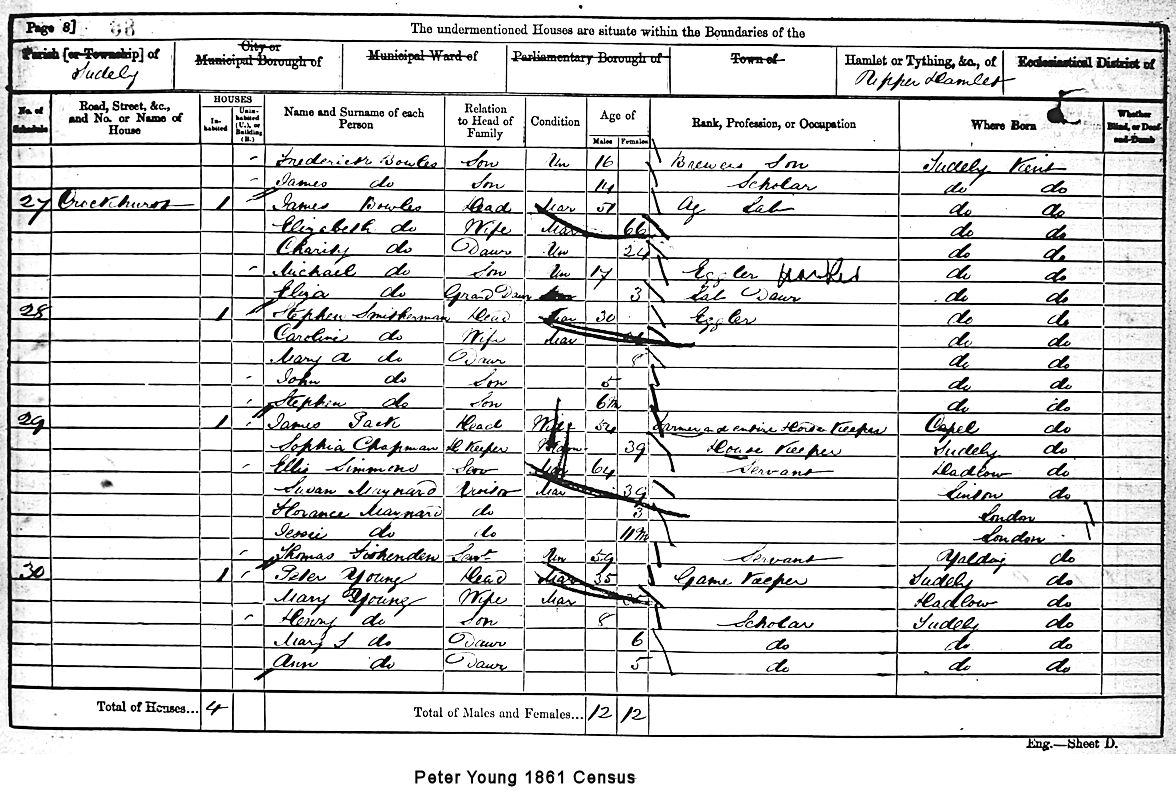 Page 8] 98
The undermentioned Houses are situate within the Boundaries of the
Parish [or Township] of City or Municipal Borough of Municipal Ward of Parliamentary Borough of Town of Hamlet or Tything, &c., of Ecclesiastical District of
Tudely Hamlet
No. of Schedule Road, Street, &c., and No. or Name of House HOUSES Inhabited Uninhabited (U.), or Building (B.) Name and Surname of each Person Relation to Head of Family Condition Age of Males Females Rank, Profession, or Occupation Where Born Whether Blind, or Deaf-and-Dumb
Frederick Bowles Son Un 16 Brewers Son Tudely Kent
James do Son 14 Scholar do do
27 Crockhurst 1 James Bowles Head Mar 51 Ag Lab do do
Elizabeth do Wife Mar 66 do do
Charity do Dawr Un 24 do do
Michael do Son Un 17 Eggler do do
Eliza do Grand Dawr 3 Lab Dawr do do
28 1 Stephen Smitherman Head Mar 30 Eggler do do
Caroline do Wife Mar do do
Mary A do Dawr 8 do do
John do Son 5 do do
Stephen do Son 6m do do
29 1 James Pack Head 54 Farmer and entire Horse Keeper Capel do
Sophia Chapman H Keeper 39 House Keeper Tudely do
Ellis Simmons Mar 64 Servant Hadlow do
Susan Maynard Visitor Mar 39 Linton do
Florance Maynard do 3 London
Jessie do do 11m London
Thomas Sishenden Servt Un 59 Servant Yalding do
30 1 Peter Young Head Mar 35 Game Keeper Tudely do
Mary Young Wife Mar Hadlow do
Henry do Son 8 Scholar Tudely do
Mary S do Dawr 6 do do do
Ann do Dawr 5 do do do
Total of Houses... 4 Total of Males and Females... 12 12
Eng.—Sheet D.
Peter Young 1861 Census